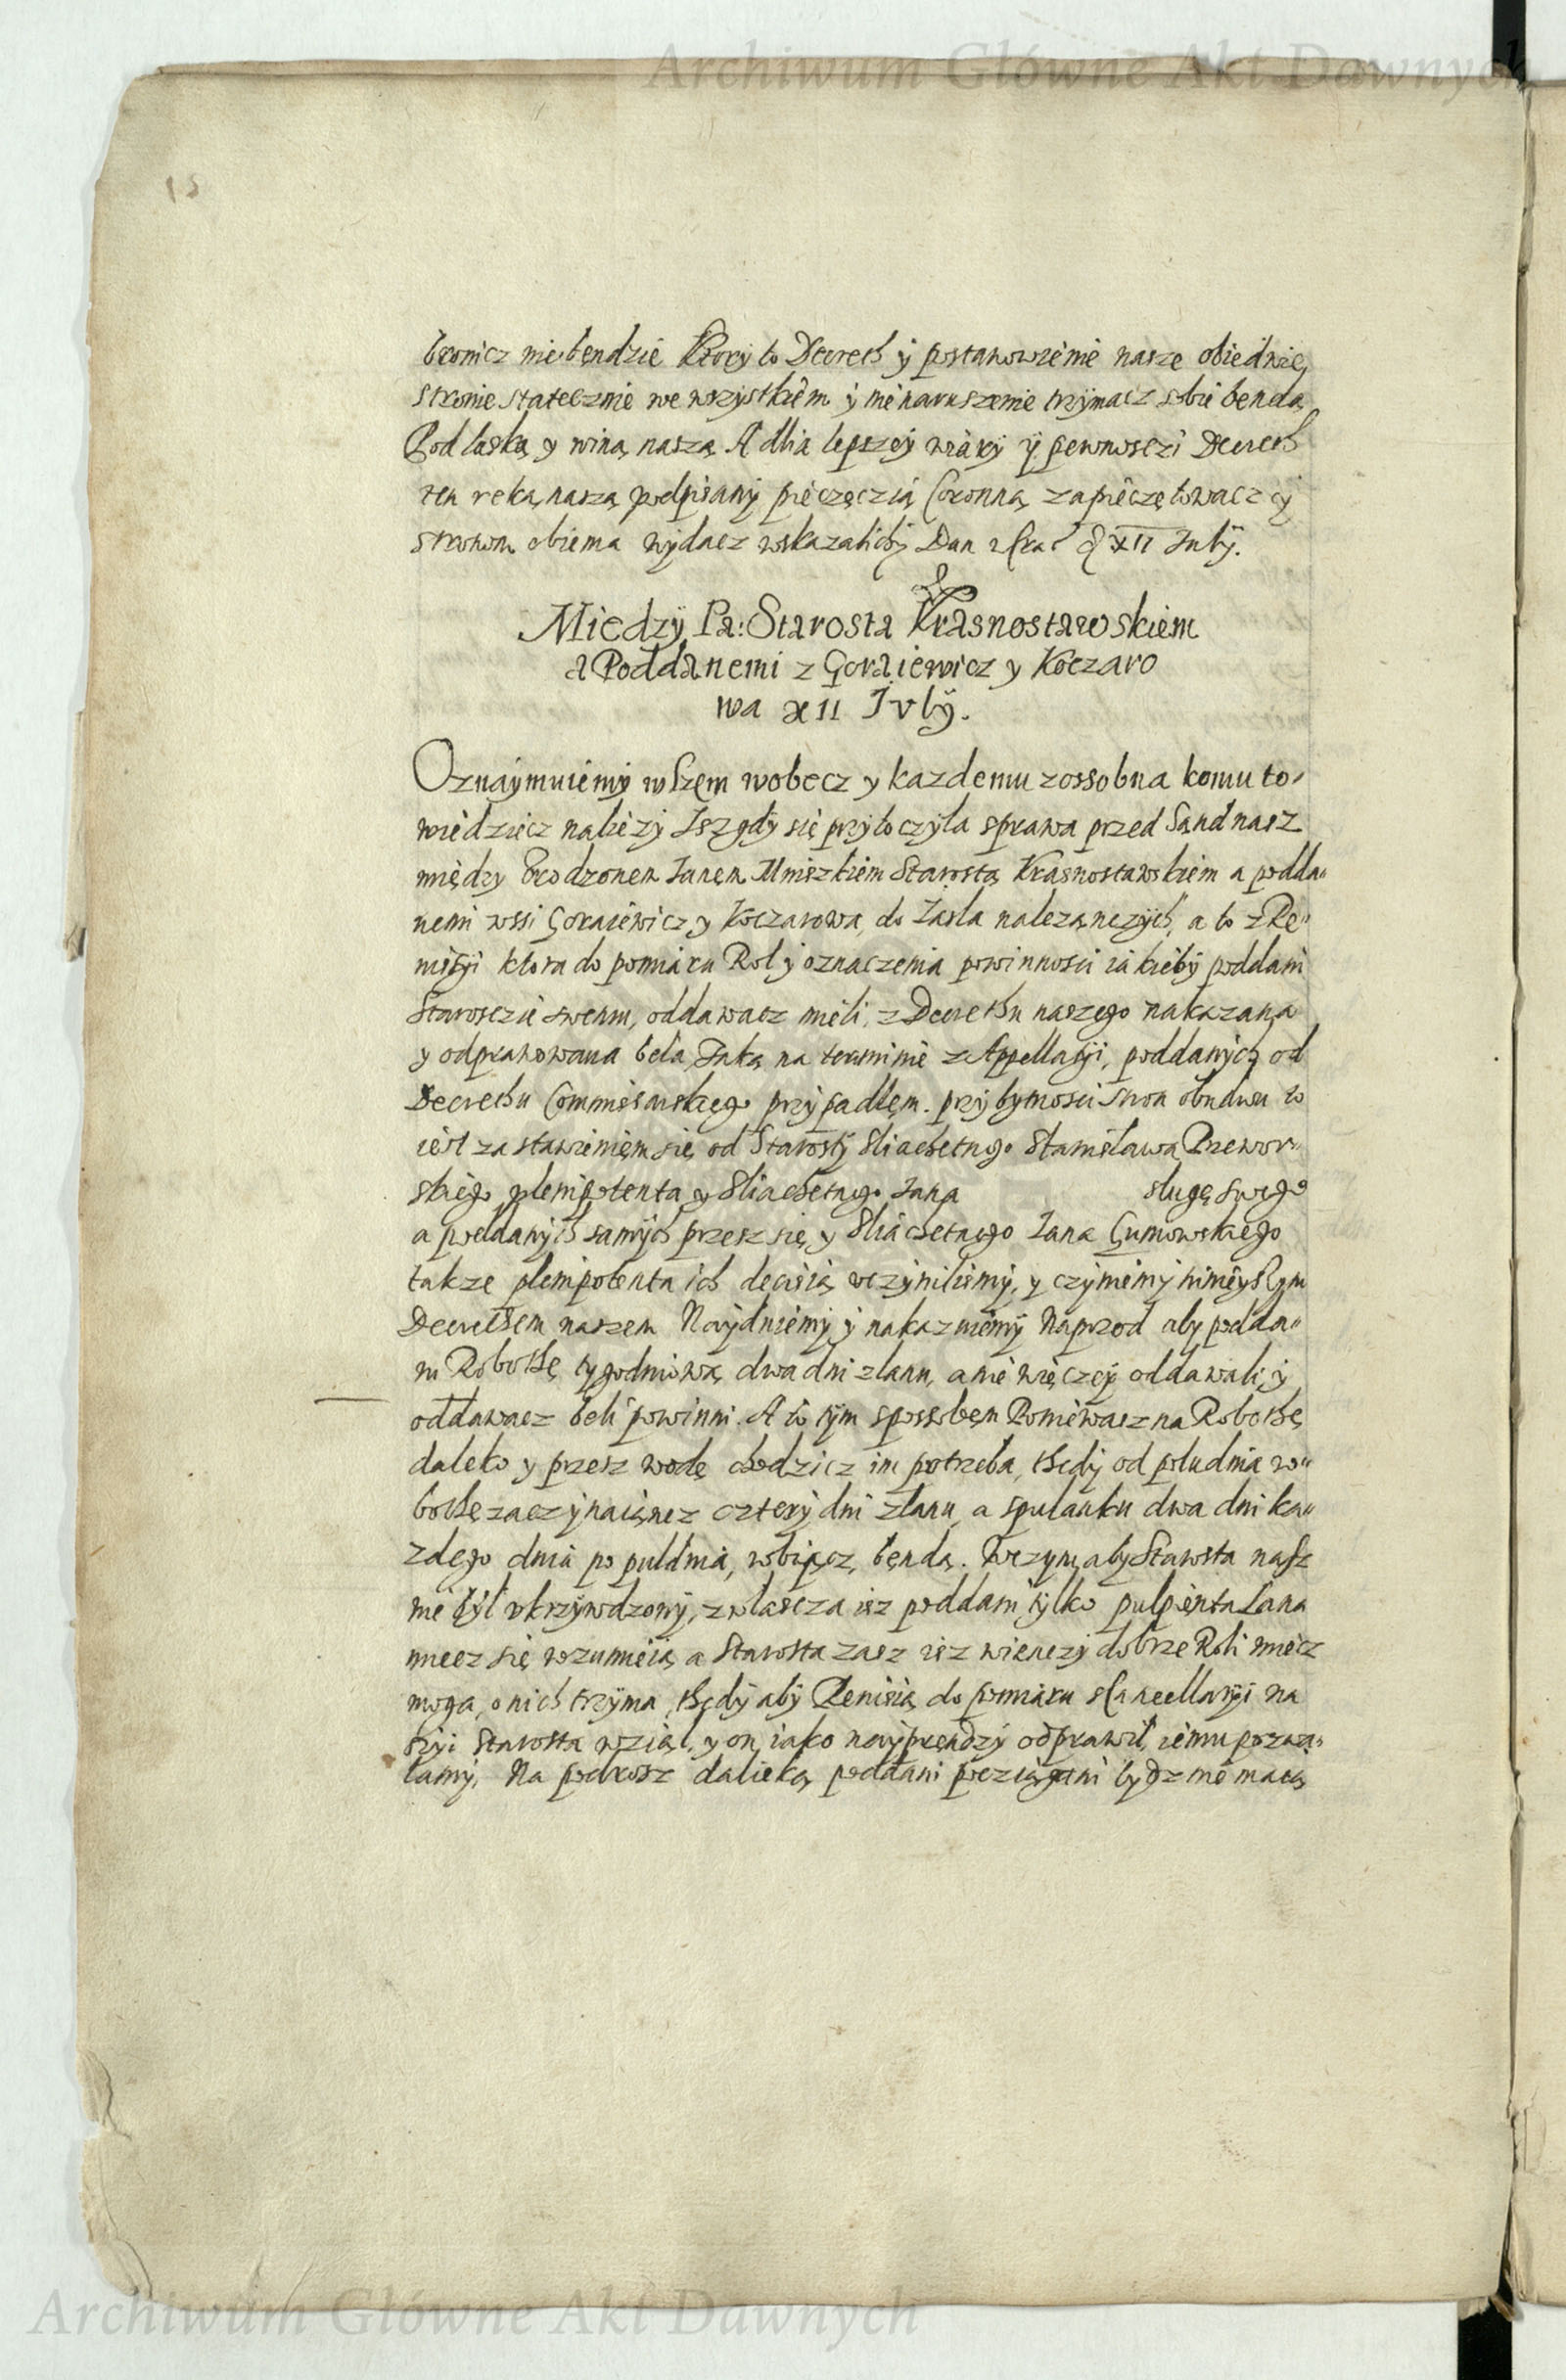 Archiwum Główne Akt Dawnych
15
bronicz nie będzie Ktory to Decreth y postanowienie nasze obiedwie
stronie statecznie we wszystkiem y nienaruszenie trzymacz sobie będą
Pod łaską y winą naszą A dlia lepszey wiary y pewnosczi Decreth
ten reką naszą podpisany pieczęczią Coronną zapieczętowacz y
stronom obiema wydacz wskazalichy Dan XII July.
Miedzy Pa: Starosta Krasnostawskiem
a Poddanemi z Goraiewicz y Koczaro
wa XII Ivly.
Oznaymuiemy wszem wobecz y kazdemu zossobna komu to
wiedziecz nalezy Isz gdy się przytoczyla sprawa przed Sand nasz
między Urodzonem Janem Mniszkiem Starostą Krasnostawskiem a podda„
nemi wssi Goraiewicz y Koczarowa, do Jasla nalezanczych, a to z Re„
missyi ktora do pomiaru Rol y oznaczenia powinnosci iakieby poddani
Starosczie swemu, oddawacz mieli, z Decrethu naszego nakazana
y odprawowana bela, Jaką na terminie z Appellacyi, poddanych od
Decrethu Commissarskiego przypadlem. przy bytnosci stron obudwu to
iest za stawieniem się od Starosty Sliachetnego Stanislawa Przewor„
skiego plenipotenta y Sliachetnego Jana slugę swego
a poddanych samych przesz się y Sliachetnego Jana Gumowskiego
takze plenipotenta ich decisią uczynilismy, y czyniemy ninieyszym
Decrethem naszem Naydniemy y nakazuiemy Naprzod aby podda„
ni Robothę tygodniową dwa dni z lanu, a nie więczey oddawali y
oddawacz beli powinni. A to tym sposobem Poniewasz na Robothę
daleko y przesz wodę chodzicz im potrzeba, thedy od poludnia ro„
bothę zaczynaiącz cztery dni z lanu, a s pulanku dwa dni ka„
zdego dnia po puldnia, robiącz, będą. W czym aby Starosta nasz
nie był vkrzywdzony, zwlascza isz poddani tylko pulpienta Lana
miecz się rozumieią a Starosta zasz isz wienczy dobrze Roli miecz
mogą, o nich trzyma, thedy aby Remisią do pomiaru s Cancellaryi na
szyi Starosta wziął, y on iako nayprendzy odprawił, iemu pozwa„
lamy. Na podrosz dalieką poddani poczięgani bydz nie maią
Archiwum Główne Akt Dawnych